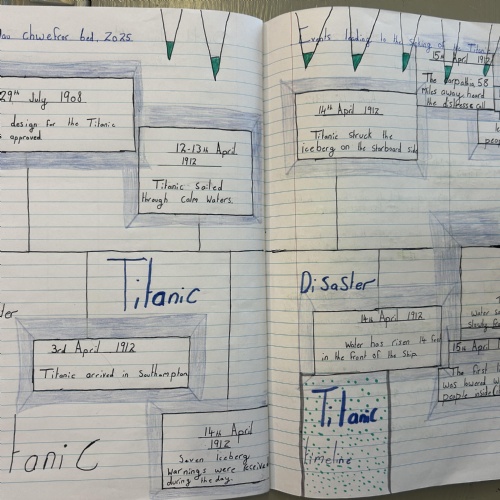 chwefror bed, 2025.
29th July 1908
design for the Titanic
approved
12-13th April
1912
Titanic sailed
through calm waters.
Titanic
3rd April 1912
Titanic arrived in Southampton
14th April
1912
Seven Iceberg
warnings were received
during the day.
tanic
Events leading to the sinking of the Titanic
14th April 1912
Titanic struck the
iceberg on the starboard side
15th April 1912
The Carpathia 58
Miles away heard
the distress call
Disaster
14th April 1912
Water has risen 14 feet
in the front of the Ship.
Water
15th April 1912
The first
was lowered
people inside
Titanic
timeline